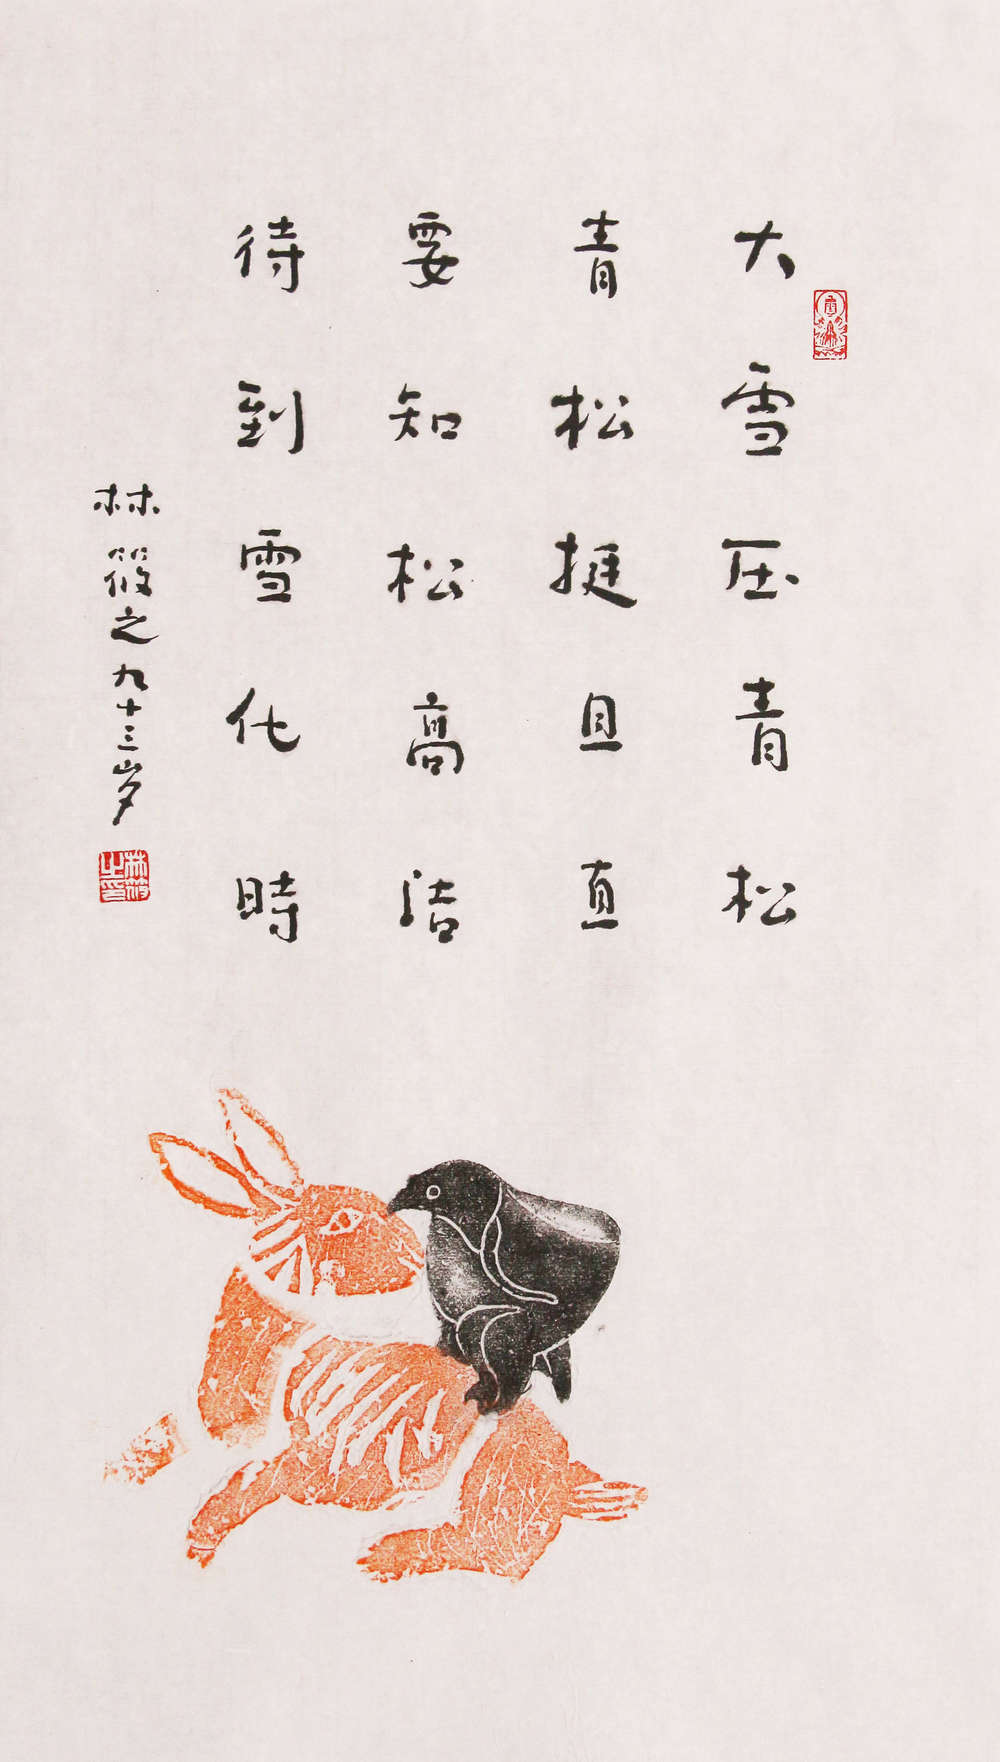 大雪压青松
青松挺且直
要知松高洁
待到雪化時
林筱之九十三岁
林筱之印